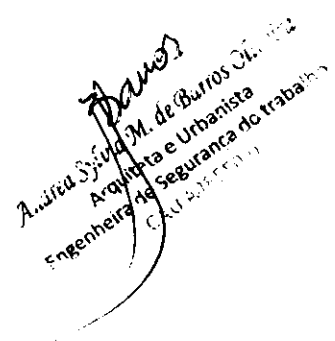 Barros
Sylvia M. de Barros
Arquiteta e Urbanista
Engenheira de Segurança do trabalho
CAU